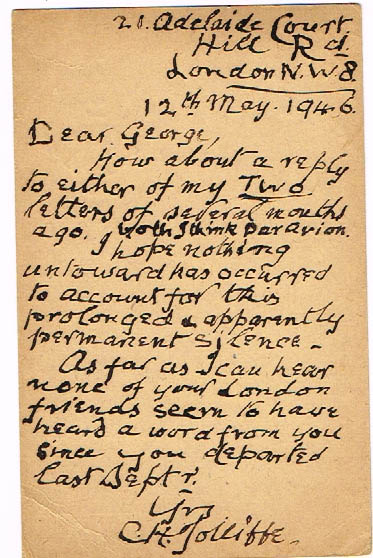 21. Adelaide Court
Hill Rd.
London N.W8.
12th May. 1946.
Dear George,
How about a reply
to either of my Two
letters of several months
ago. both I think par avion.
I hope nothing
untoward has occurred
to account for this
prolonged & apparently
permanent silence.
As far as I can hear
none of your London
friends seem to have
heard a word from you
since you departed
last Sept'r.
Yrs
C.H. Jolliffe.